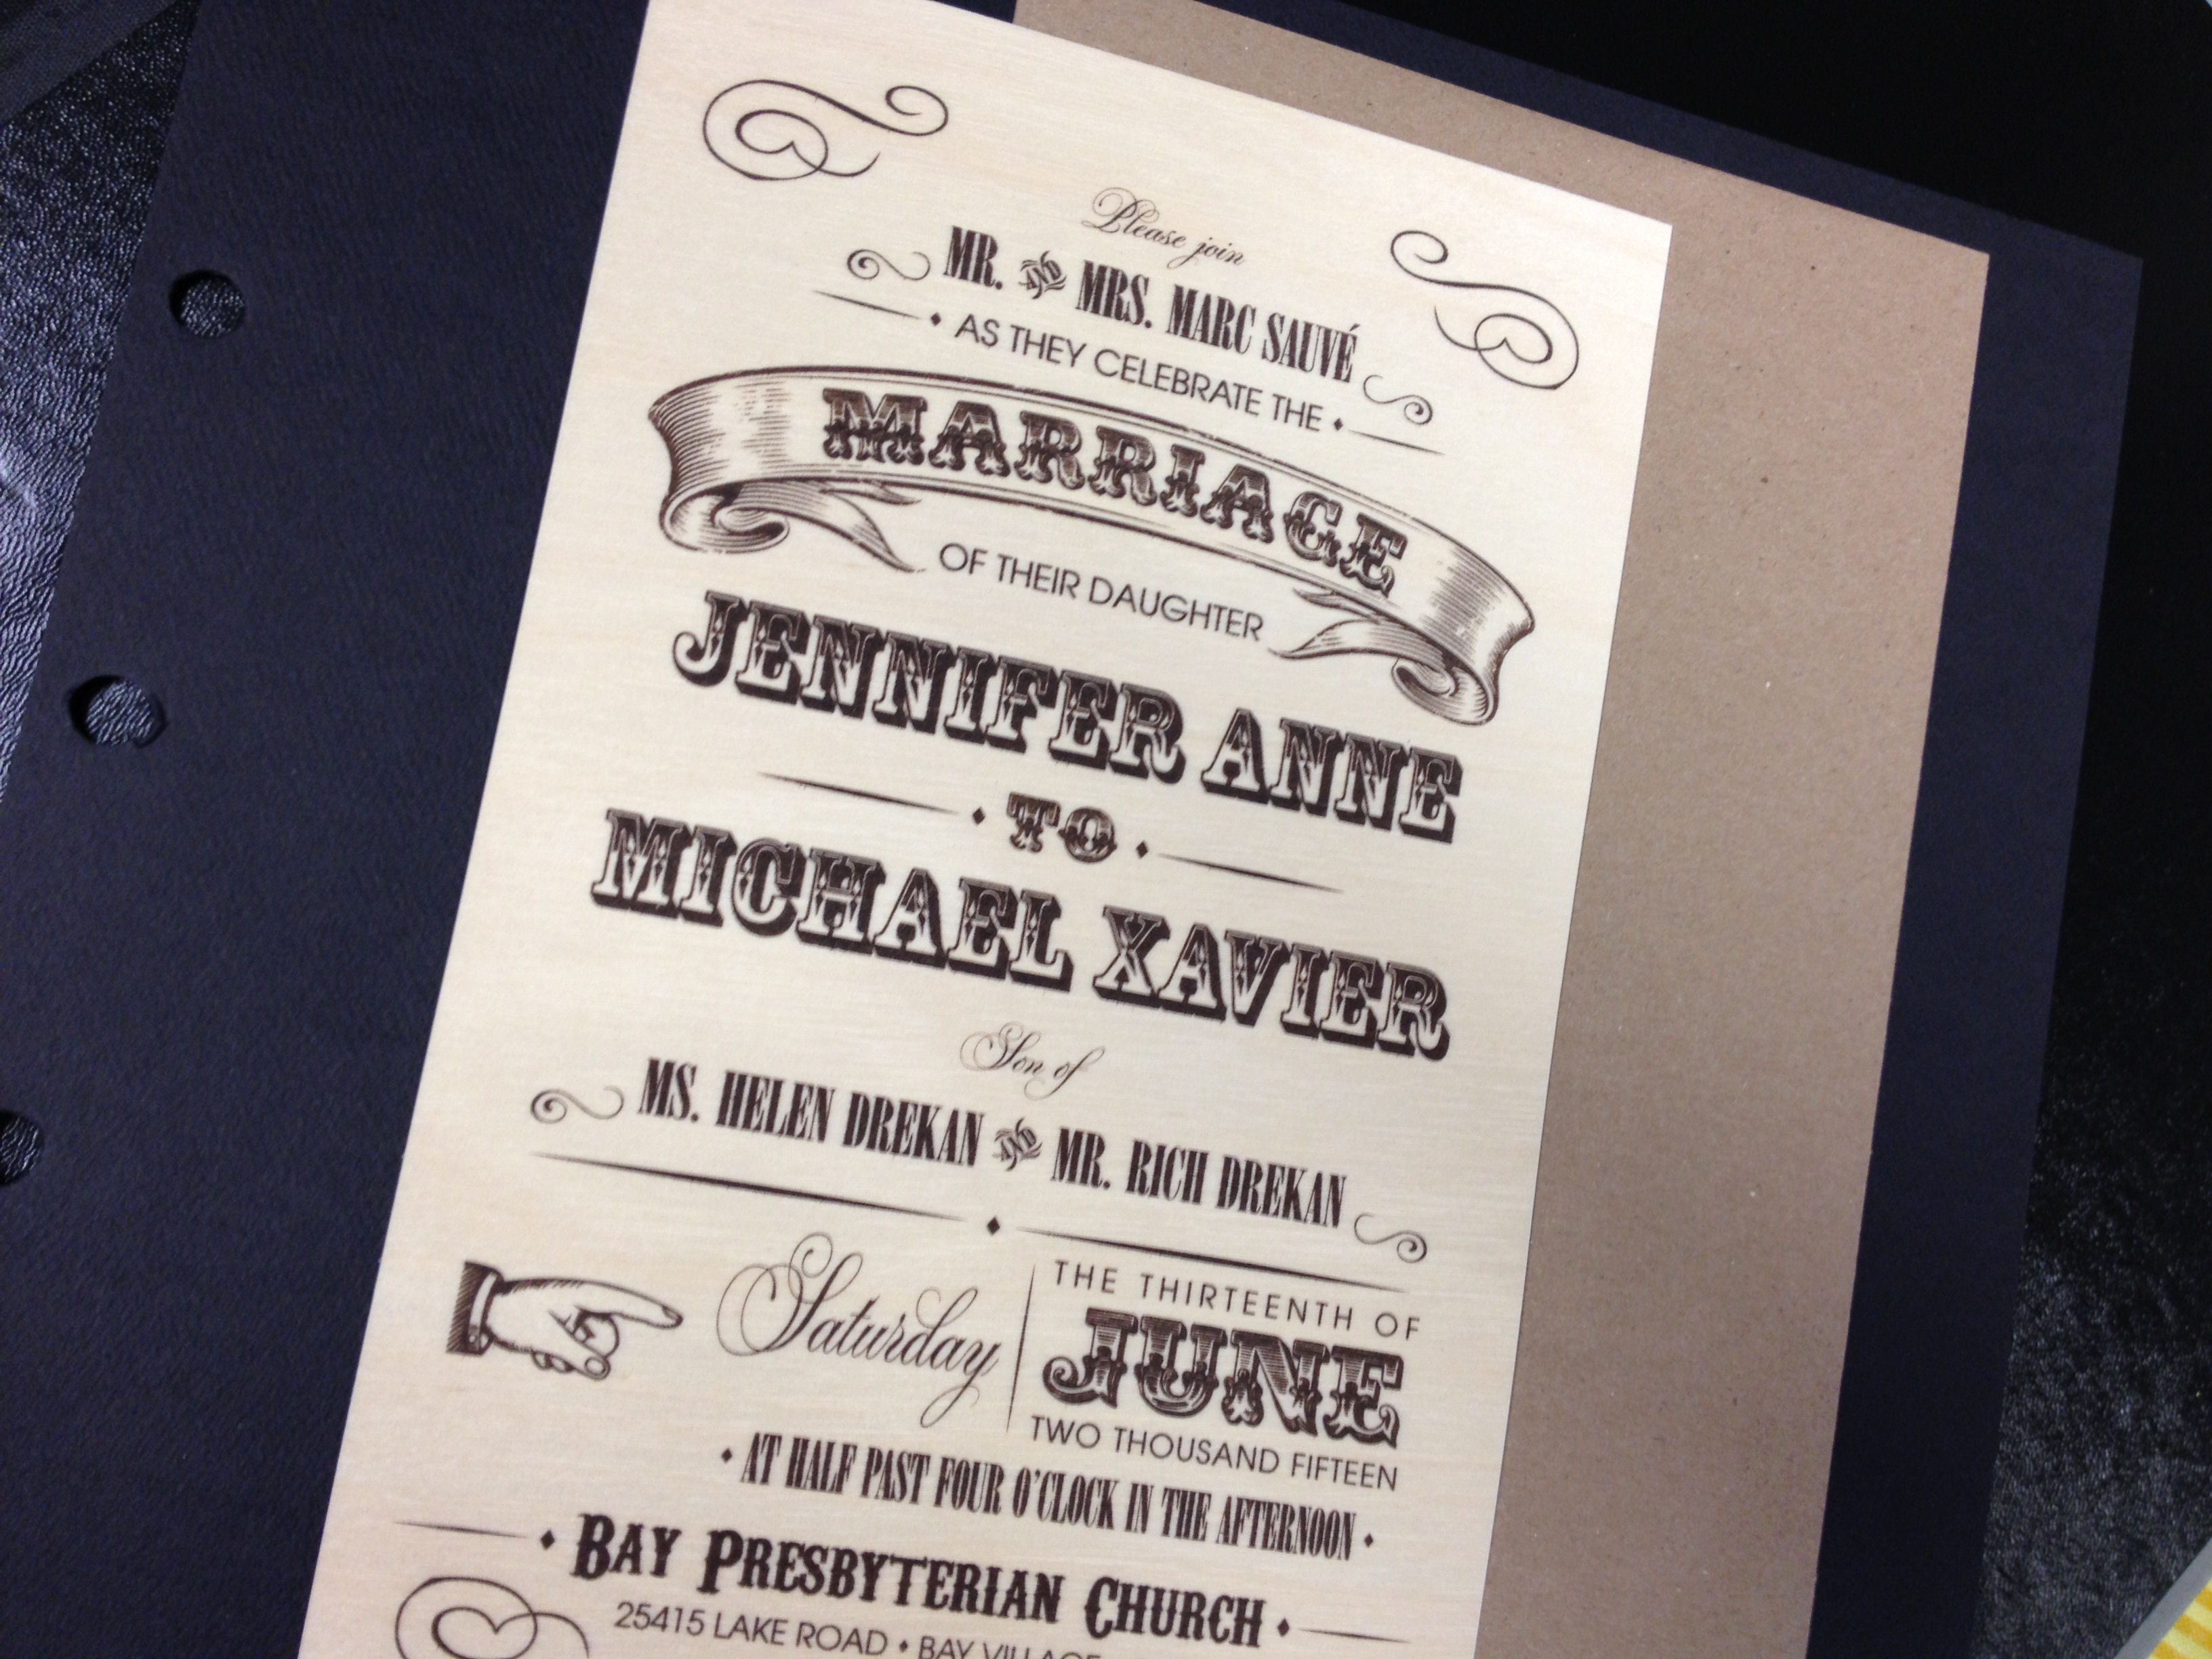 Please join
MR. AND MRS. MARC SAUVÉ
AS THEY CELEBRATE THE
MARRIAGE
OF THEIR DAUGHTER
JENNIFER ANNE
TO
MICHAEL XAVIER
Son of
MS. HELEN DREKAN AND MR. RICH DREKAN
Saturday
THE THIRTEENTH OF
JUNE
TWO THOUSAND FIFTEEN
AT HALF PAST FOUR O'CLOCK IN THE AFTERNOON
BAY PRESBYTERIAN CHURCH
25415 LAKE ROAD • BAY VILLAGE